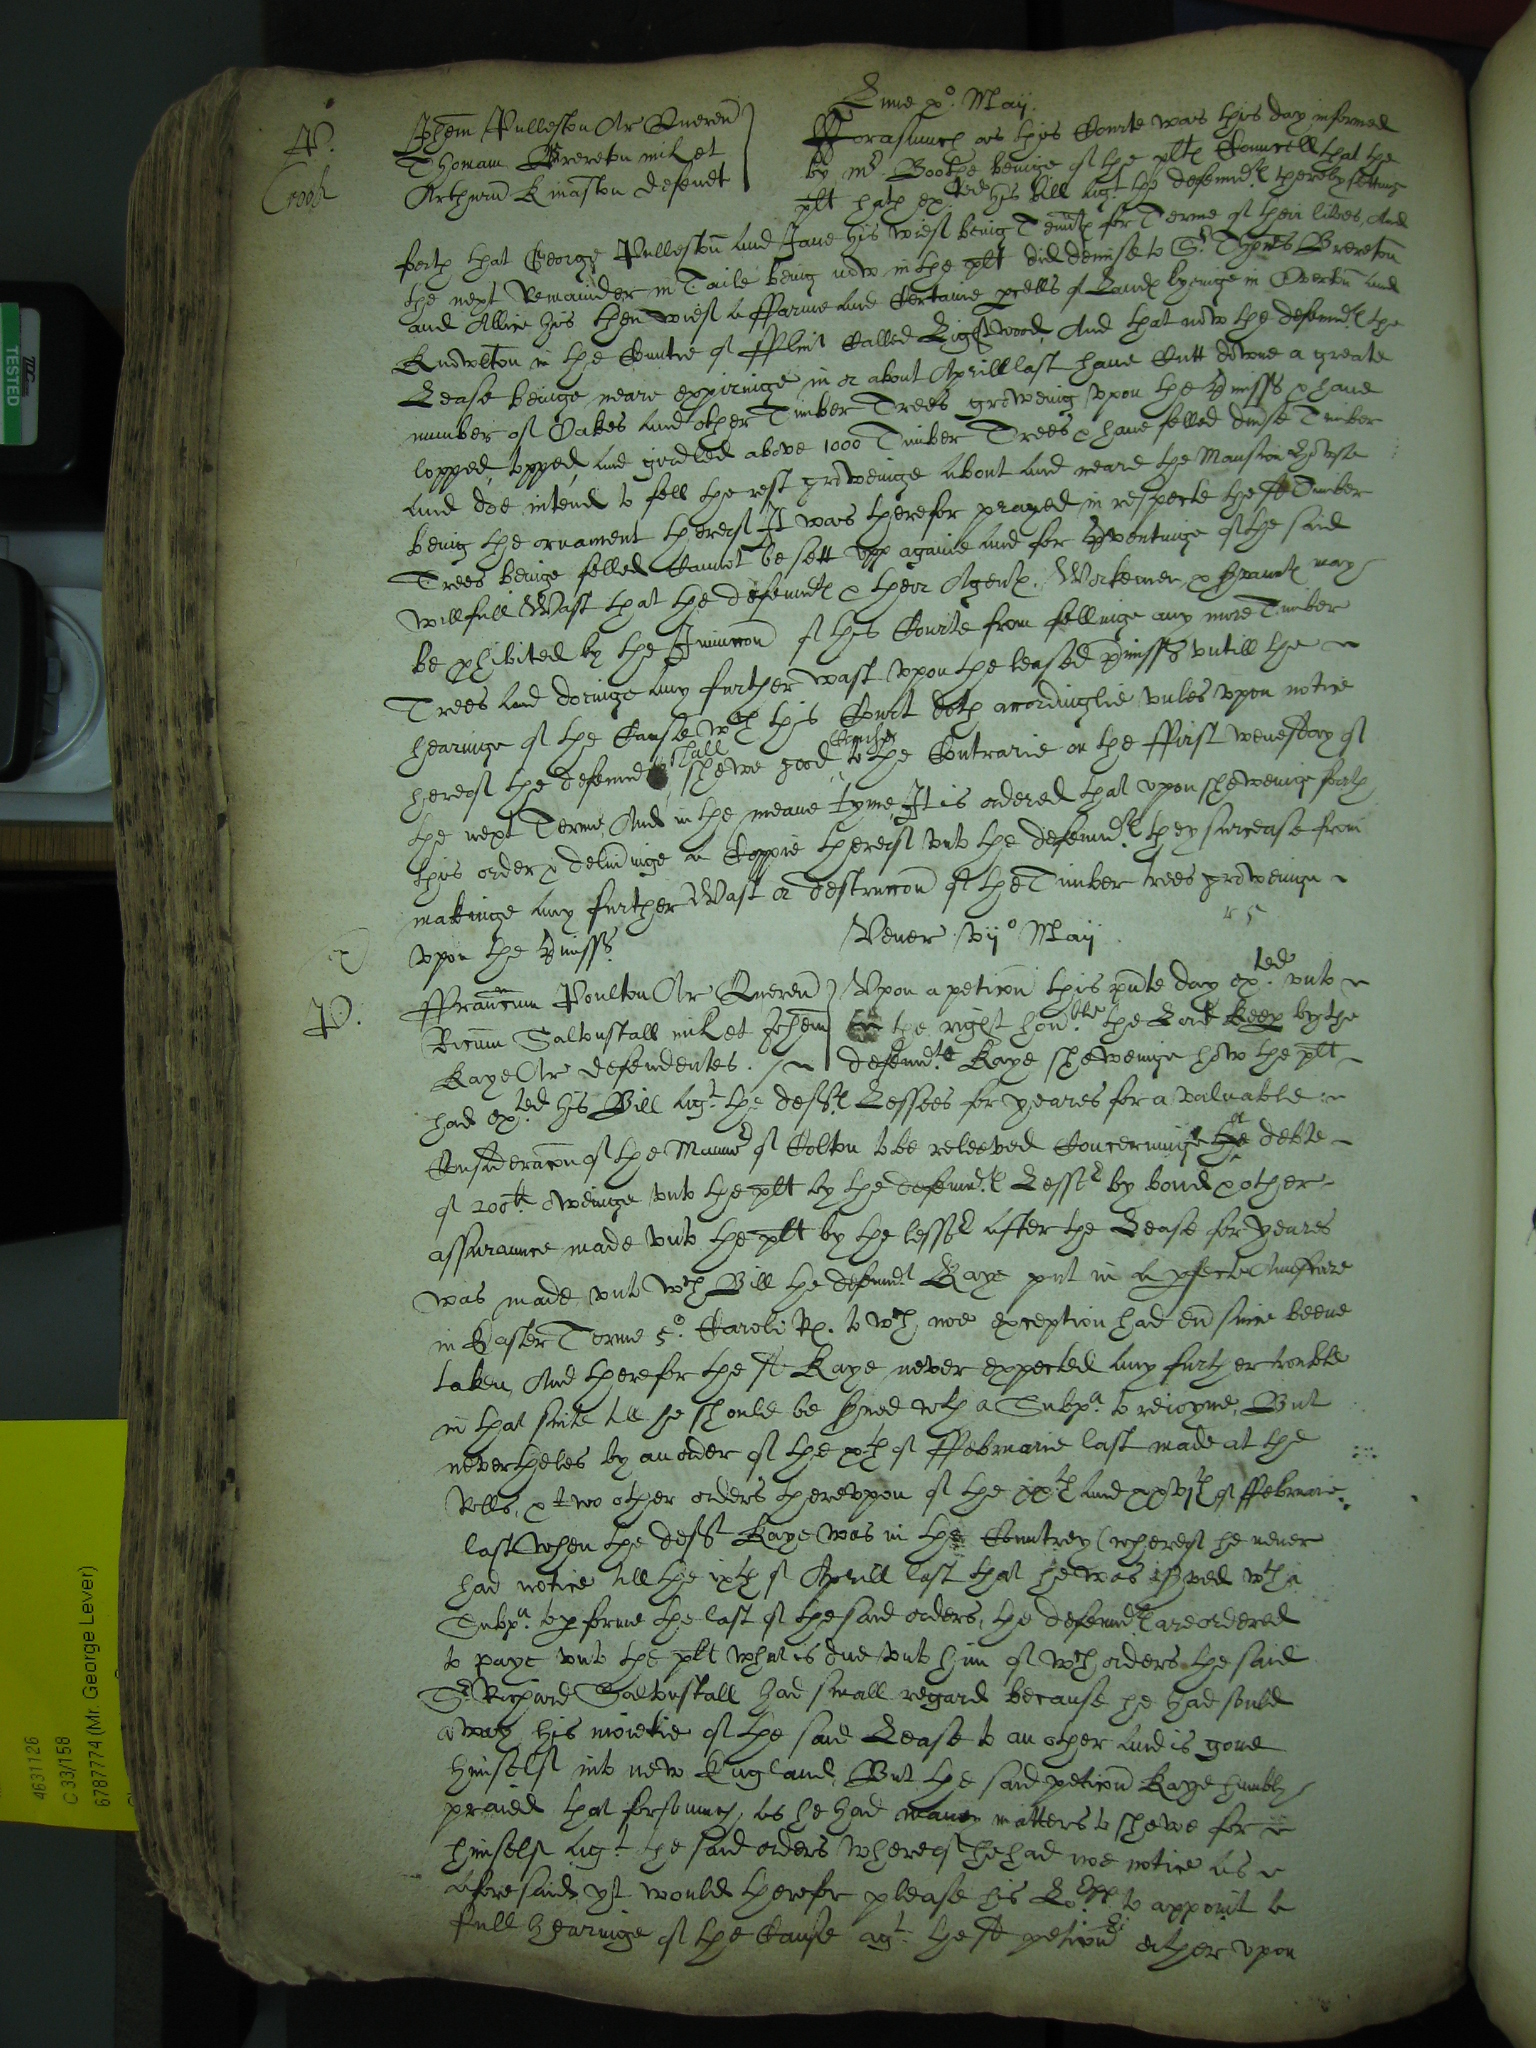 Lune xo. Maij.
P.
Crook
Johem Pulleston Ar Queren
Thomam Brereton mil et
Arthurum Kinaston defendt
Forasmuch as this Courte was this day informed
by Mr Boothe beinge of the plts Councell that the
plt hath exted his bill agt the defendts thereby setting
forth that George Pulleston and Jane his wief being Tennts for Terme of their lives, And
the next Remainder in Taile being now in the plt did demise to Sr Thomas Brereton
and Allice his then wief a ffarme and Certaine pcells of Lands lyeinge in Overton and
Knowlton in the Countie of fflint Called Lightwood, And that now the defendts the
Lease beinge neare expiringe in or about Aprill last have Cutt downe a greate
number of Oakes and other Timber Trees groweing upon the pmisses & have
lopped, topped, and girdled above 1000 Timber Trees & have felled diuse Timber
and doe intend to fell the rest groweinge about and neare the Mansion House
being the ornament thereof It was therefor prayed in respecte the sd Timber
Trees beinge felled Cannot be sett upp againe and for pventinge of the said
willfull Wast that the defendts & their Agents, Workemen, & servants may
be phibited by the Iniunccon of this Courte from fellinge any more Timber
Trees and doeinge any further wast upon the leased pmisses untill the
hearinge of the Cause wch this Court doth accordinglie unles upon notice
hereof the defendts shall shewe good Cause to the Contrarie on the ffirst wenesday of
the next Terme, And in the meane tyme, It is ordered that upon sheweinge forth
this order & deliueringe a Coppie thereof unto the defendts they surcease from
makinge any further Wast or destruccon of the Timber trees groweinge
upon the pmisses.
Vener vijo Maij
P.
ffrancum Poulton Ar Queren
Ricum Saltonstall mil et Johem
Kaye Ar defendentes.
Upon a peticon this pnte day exted unto
the right honble the Lord Keep by the
defendte Kaye sheweinge how the plt
had exted his Bill agt the defts Lessees for yeares for a valuable
Consideracon of the Mannor of Colton to be releeved Concerninge the debte
of 200li oweinge unto the plt by the defendts Lessor by bond & other
assuraunce made unto the plt by the lessor after the Lease for yeares
was made, unto wch Bill the defendt Kaye put in a pfecte Answere
in Easter Terme 5o. Caroli Rs. to wch noe exception had en since beene
taken, And therefor the sd Kaye never expected any further trouble
in that suite till he should be serued with a Subpa. to reioyne, But
neuertheles by an order of the xth of ffebruarie last made at the
Rolls, & two other orders thereupon of the xxth and xxvjth of ffebruarie
last when the deft Kaye was in the Countrey (whereof he never
had notice till the ixth of Aprill last that he was served wth a
Subpa. to pforme the last of the said orders, the defendts are ordered
to paye unto the plt what is due unto him of wch orders the said
Sr Richard Saltonstall had small regard because he had sould
away his moietie of the said Lease to an other and is gone
himself into new England, But the said peticonr Kaye humbly
praied that forsomuch as he had many matters to shewe for
himself agt the said orders whereof he had noe notice as
aforesaid, yt would therefor please his Lopp. to appoint a
full hearinge of the Cause agt the sd peticonr either upon
TESTED
4631126
C 33/158
6787774 (Mr. George Lever)